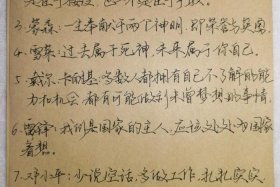 3、蒙森:一生奉献于两个神明,即荣誉与英国。
4、雪莱:过去属于死神,未来属于你自己。
5、戴尔·卡耐基:多数人都拥有自己不了解的能
力和机会,都有可能做到未曾梦想的事情。
6、雷锋:我们是国家的主人,应该处处为国家
着想。
7、邓小平:少说空话,多做工作,扎扎实实